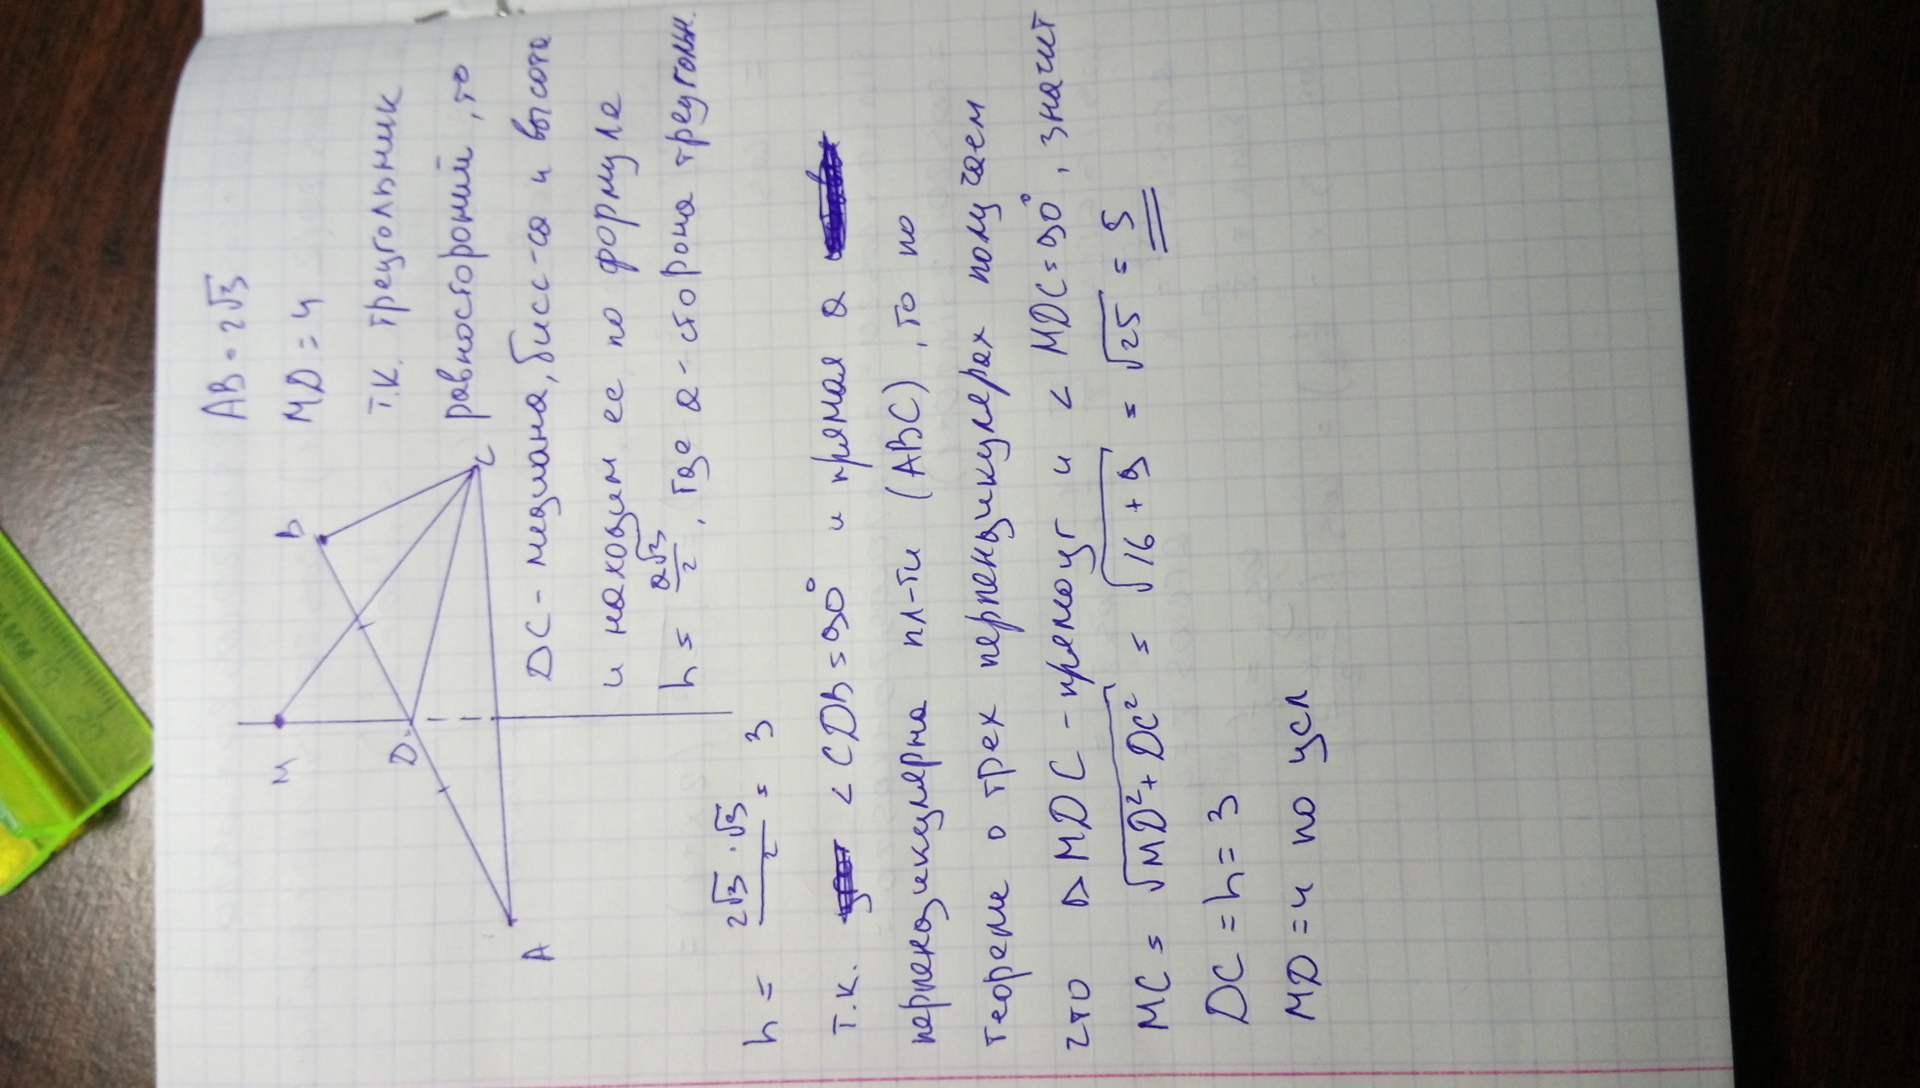 AB = 2√3
MD = 4
M
B
D
C
A
т.к. треугольник
равносторонний, то
DC - медиана, бисс-са и высота
и находим ее по формуле
h = a√3/2, где a - сторона треугольн.
h = 2√3·√3/2 = 3
т.к. < CDB = 90° и прямая a
перпендикулярна пл-ти (ABC), то по
теореме о трех перпендикулярах получаем
что ▷ MDC - прямоуг и < MDC = 90°, значит
MC = √MD²+DC² = √16+9 = √25 = 5
DC = h = 3
MD = 4 по усл